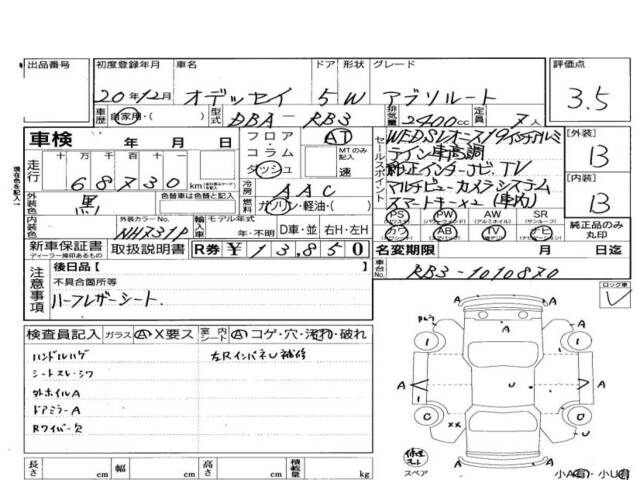 出品番号 初度登録年月 車名 ドア 形状 グレード 評価点
20年12月 オデッセイ 5 W アブソルート 3.5
車歴 自家用・( ) 型式 DBA－RB3 排気量 2400cc 定員 7人
車検 年 月 日
フロア・コラム・ダッシュ AT MTのみ記入 速
セールスポイント
WEDSレオニス19インチアルミ
テイン車高調
純正インターナビ、TV
マルチビューカメラシステム
スマートキー×2 (車内)
[外装] B
[内装] B
走行 十 万 千 百 十 一
68730 km
冷房 AAC
燃料 ガソリン・軽油・( )
外装色 黒
PS PW AW SR
(パワステ) (アルミホイル) (サンルーフ)
カワ AB TV ナビ
純正品のみ丸印
内装色 外装カラーNo. NH731P 輸入車 モデル年式 年・不明 D車・並 右H・左H
新車保証書 取扱説明書 R券 ¥13,850
ディーラー捺印あるもの
名変期限 月 日迄
車台No. RB3-1010870
注意事項
後日品[ ]
不具合箇所等
ハーフレザーシート.
ロック車
検査員記入 ガラス A・X要ス 室内 シート内 A コゲ・穴・汚れ・破れ
ハンドルハゲ 左RインパネU補修
シートスレ・シワ
外ホイルA
ドアミラーA
Rワイパー欠
A
1 1
A A A
U
C 0
XX U
A
スペア
小A(有)・小U(有)
長さ cm 幅 cm 高さ cm 積載量 kg